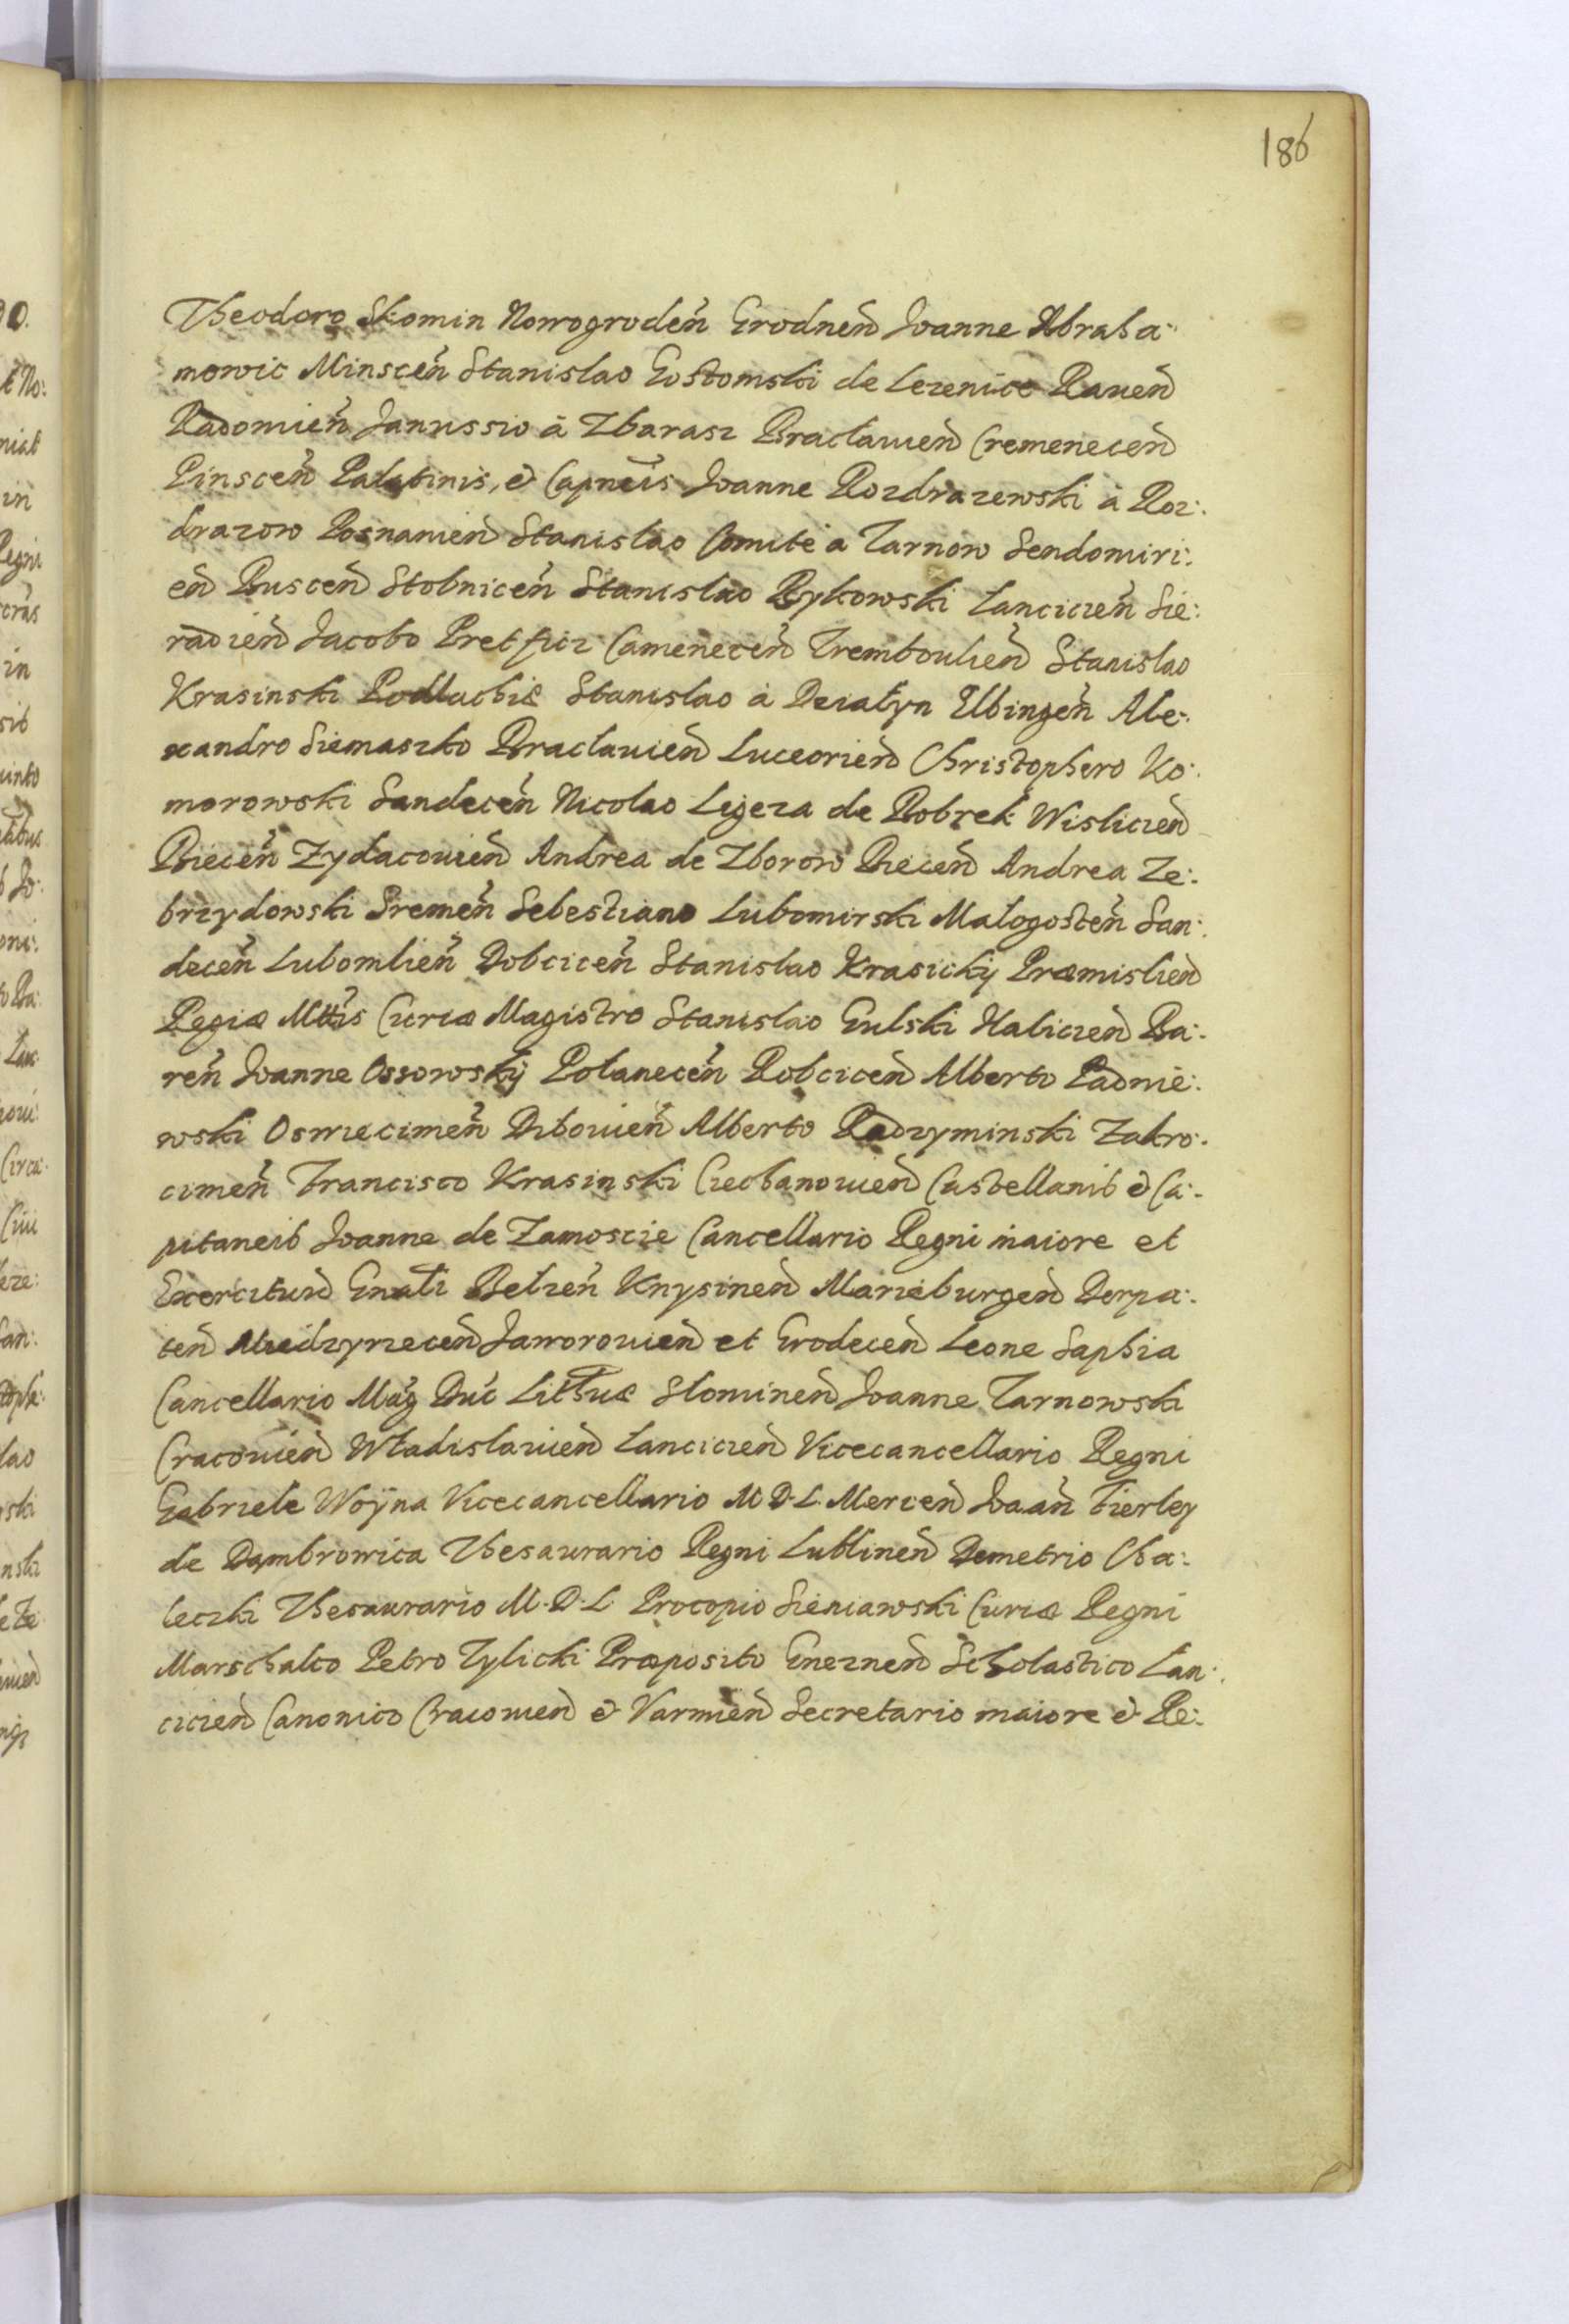 186
Theodoro Skomin Nowogroden̄ Grodnen̄ Joanne Abraha:
mowic Minscen̄ Stanislao Gostomski de Lezenice Raven̄
Radomien̄ Janussio à Zbarasz Braclavien̄ Cremenecen̄
Pinscen̄ Palatinis, & Capneis Joanne Rozdrazewski à Roz:
drazow Posnanien̄ Stanislao Comite a Tarnow Sendomiri:
en̄ Buscen̄ Stobnicen̄ Stanislao Bykowski Lancicien̄ Sie:
radien̄ Jacobo Pretficz Camenecen̄ Tremboulien̄ Stanislao
Krasinski Podlachiæ Stanislao à Dzialyn Elbingen̄ Ale:
xandro Siemaszko Braclavien̄ Luceorien̄ Christophero Ko:
morowski Sandecen̄ Nicolao Ligeza de Bobrek Wislicien̄
Biecen̄ Zydacovien̄ Andrea de Zborow Biecen̄ Andrea Ze:
brzydowski Sremen̄ Sebestiano Lubomirski Małogosten̄ San:
decen̄ Lubomlien̄ Dobcicen̄ Stanislao Krasicky Præmislien̄
Regiæ Mttis Curiæ Magistro Stanislao Gulski Halicien̄ Ba:
ren̄ Joanne Ossowsky Połanecen̄ Robcicen̄ Alberto Padnie:
wski Oswiecimen̄ Dibovien̄ Alberto Radzyminski Zakro:
cimen̄ Francisco Krasinski Ciechanovien̄ Castellanis & Ca:
pitaneis Joanne de Zamoscie Cancellario Regni maiore et
Exercituū Gnali Belzen̄ Knysinen̄ Marieburgen̄ Derpa:
ten̄ Miedzyrzecen̄ Jaworovien̄ et Grodecen̄ Leone Saphia
Cancellario Mag Duc Lithuæ Slominen̄ Joanne Tarnowski
Cracovien̄ Władislavien̄ Lancicien̄ Vicecancellario Regni
Gabriele Woÿna Vicecancellario M D. L. Mercen̄ Joan̄ Fierley
de Dąmbrowica Thesaurario Regni Lublinen̄ Demetrio Cha:
leczki Thesaurario M. D. L. Procopio Sieniawski Curiæ Regni
Marschalco Petro Tylicki Præposito Gneznen̄ Scholastico Lan:
cicien̄ Canonico Cracovien̄ & Varmien̄ Secretario maiore & Re: